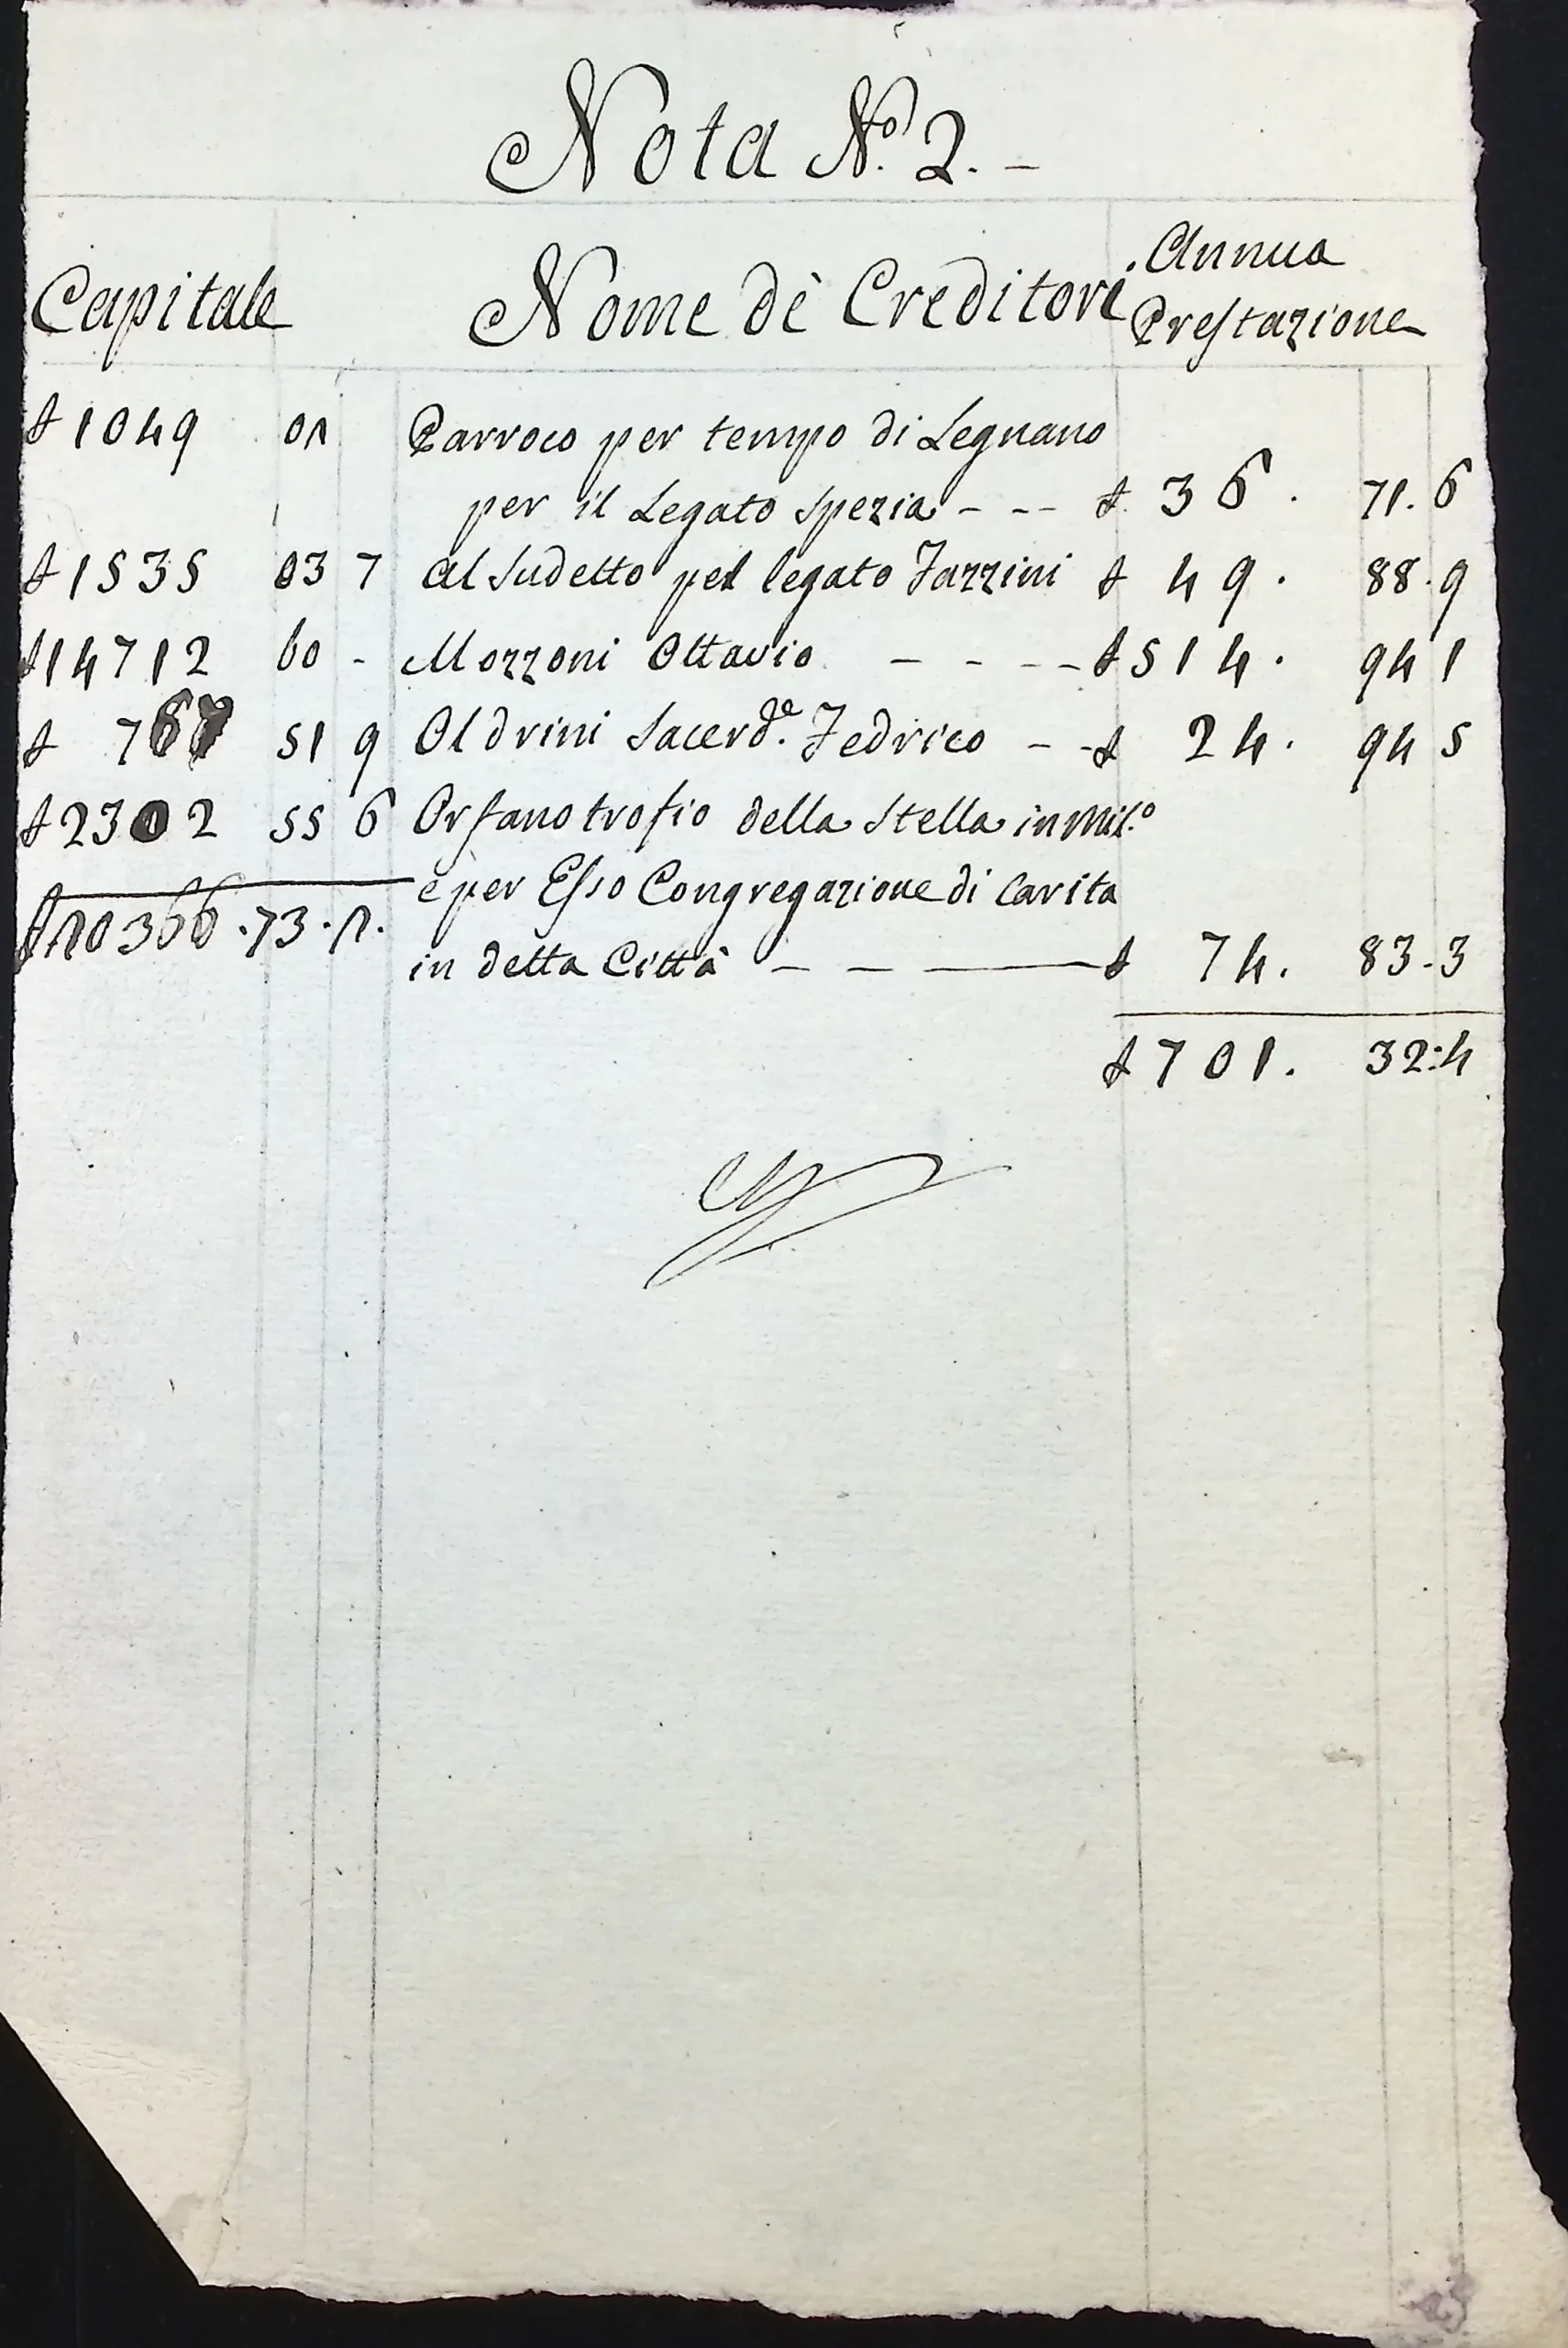 Nota N.º 2. -
Capitale Nome dè Creditori Annua
Prestazione
£ 1049 02 Parroco per tempo di Legnano
per il Legato Spezia - - - £ 36 . 71. 6
£ 1535 03 7 Al Sudetto pel legato Fazzini £ 49 . 88. 9
£ 14712 60 - Mozzoni Ottavio - - - - £ 514 . 94 1
£ 767 51 9 Oldrini Sacerd.te Fedrico - - £ 24 . 94 5
£ 2302 55 6 Orfanotrofio della Stella in Mil.º
e per Esso Congregazione di Carita
£ 20366 . 73 . 2. in detta Città - - - £ 74. 83-3
£ 701. 32:4